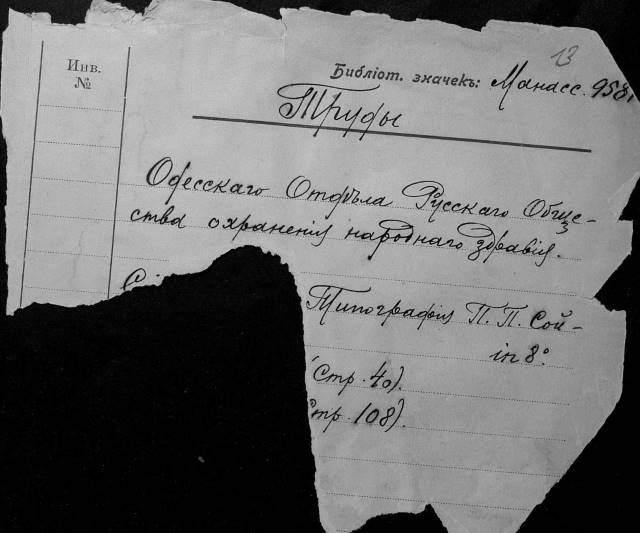 13
Инв.
№
Библіот. значекъ: Манасс. 958
Труды
Одесскаго Отдѣла Русскаго Обще-
ства охраненія народнаго здравія.
Типографія П. П. Сой-
in 8°
(Стр. 40).
Стр. 108).